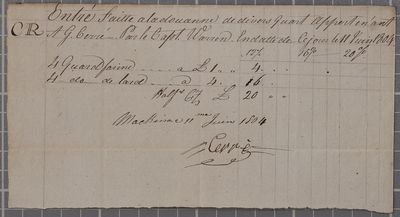 Entré Faitte a la douanne de divers Quart Appartenant
CR A G Cerré Par le Capt. Warren En datte de Cejour le 11 Juin 1804
12½ 15 20
4 Quard farine a £ 1 " 4
4 do de lard a 4 16
£ 20
Mackinac 11 me Juin 1804
Cerré